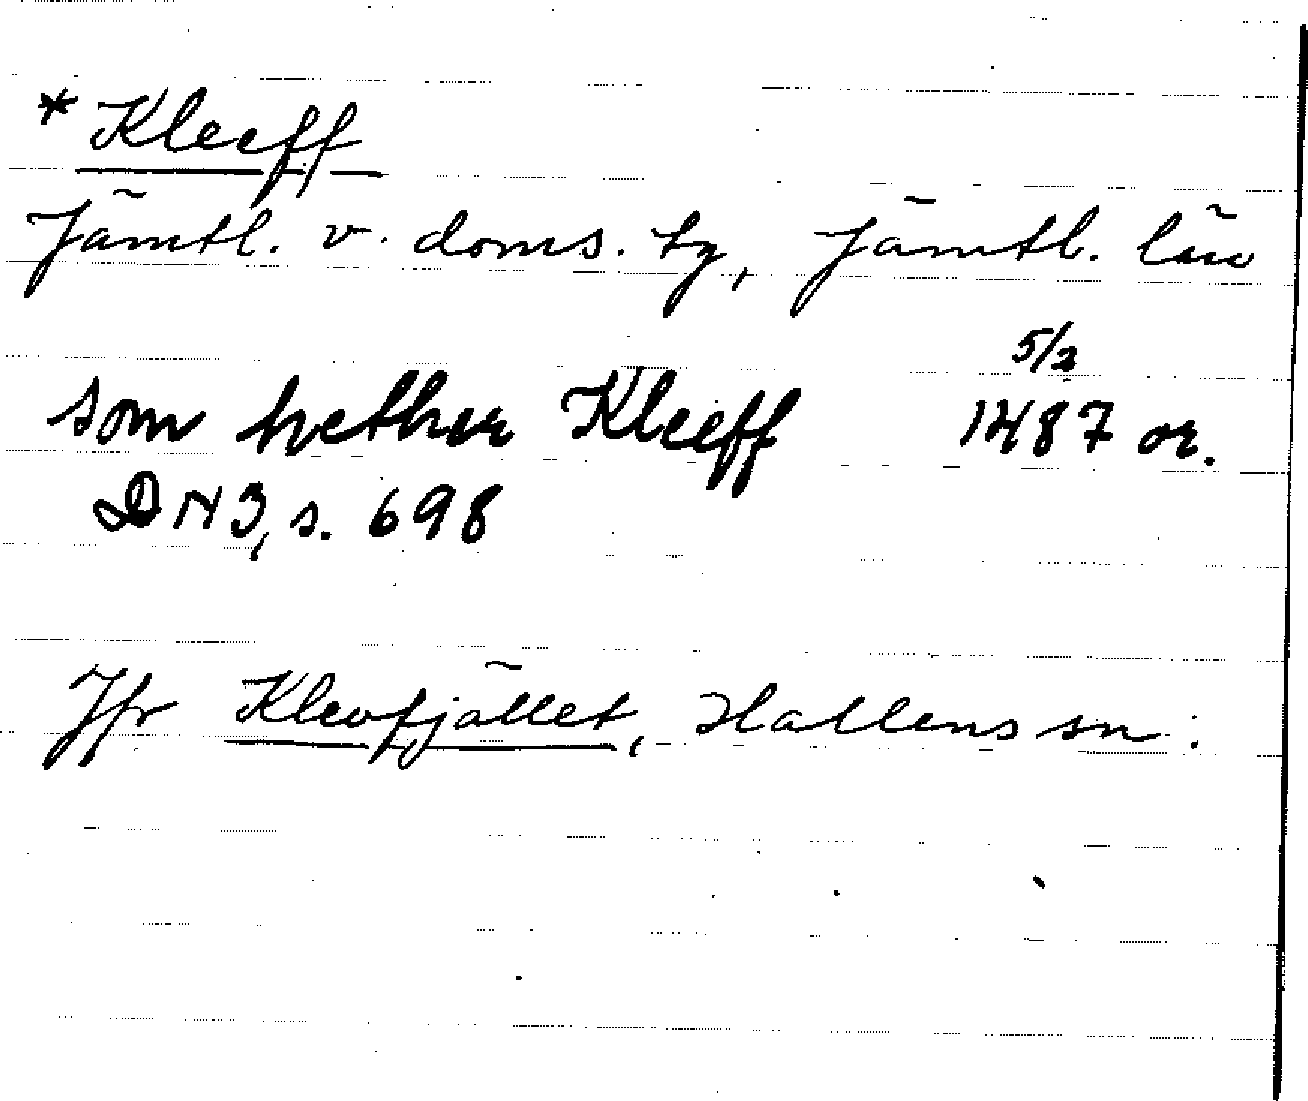 * Kleeff
Jämtl. v. doms. tg, Jämtl. län
5/2
som hether Kleeff 1487 or.
DN 3, s. 698
Jfr Klevfjället, Hallens sn.